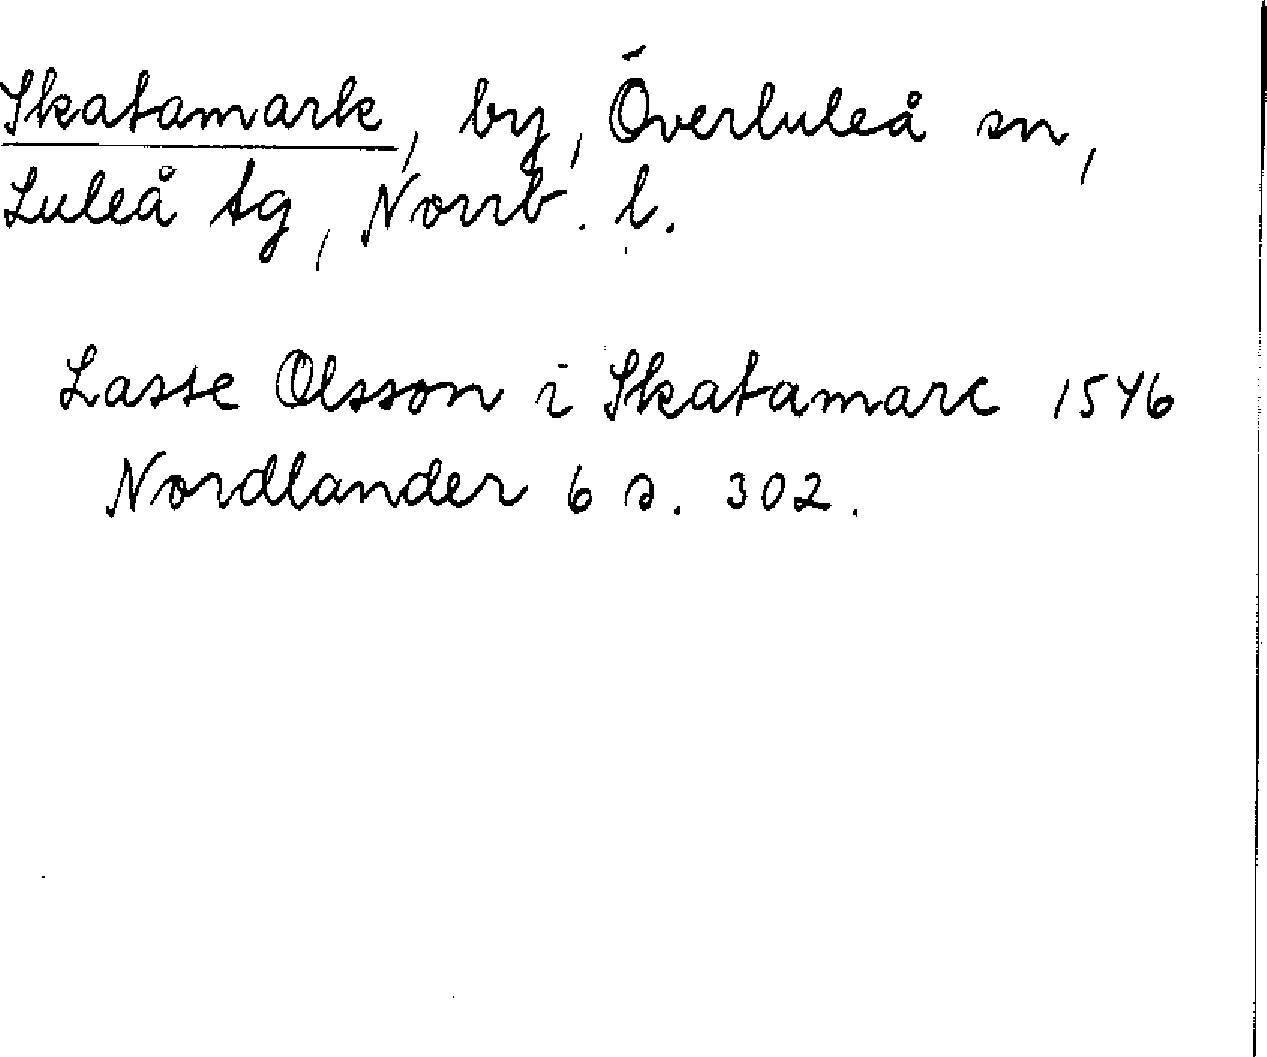 Skatamark, by, Överluleå sn,
Luleå tg, Norrb. l.
Lasse Olsson i Skatamarc 1546
Nordlander 6 s. 302.